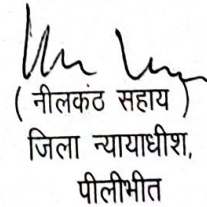 ( नीलकंठ सहाय )
जिला न्यायाधीश,
पीलीभीत